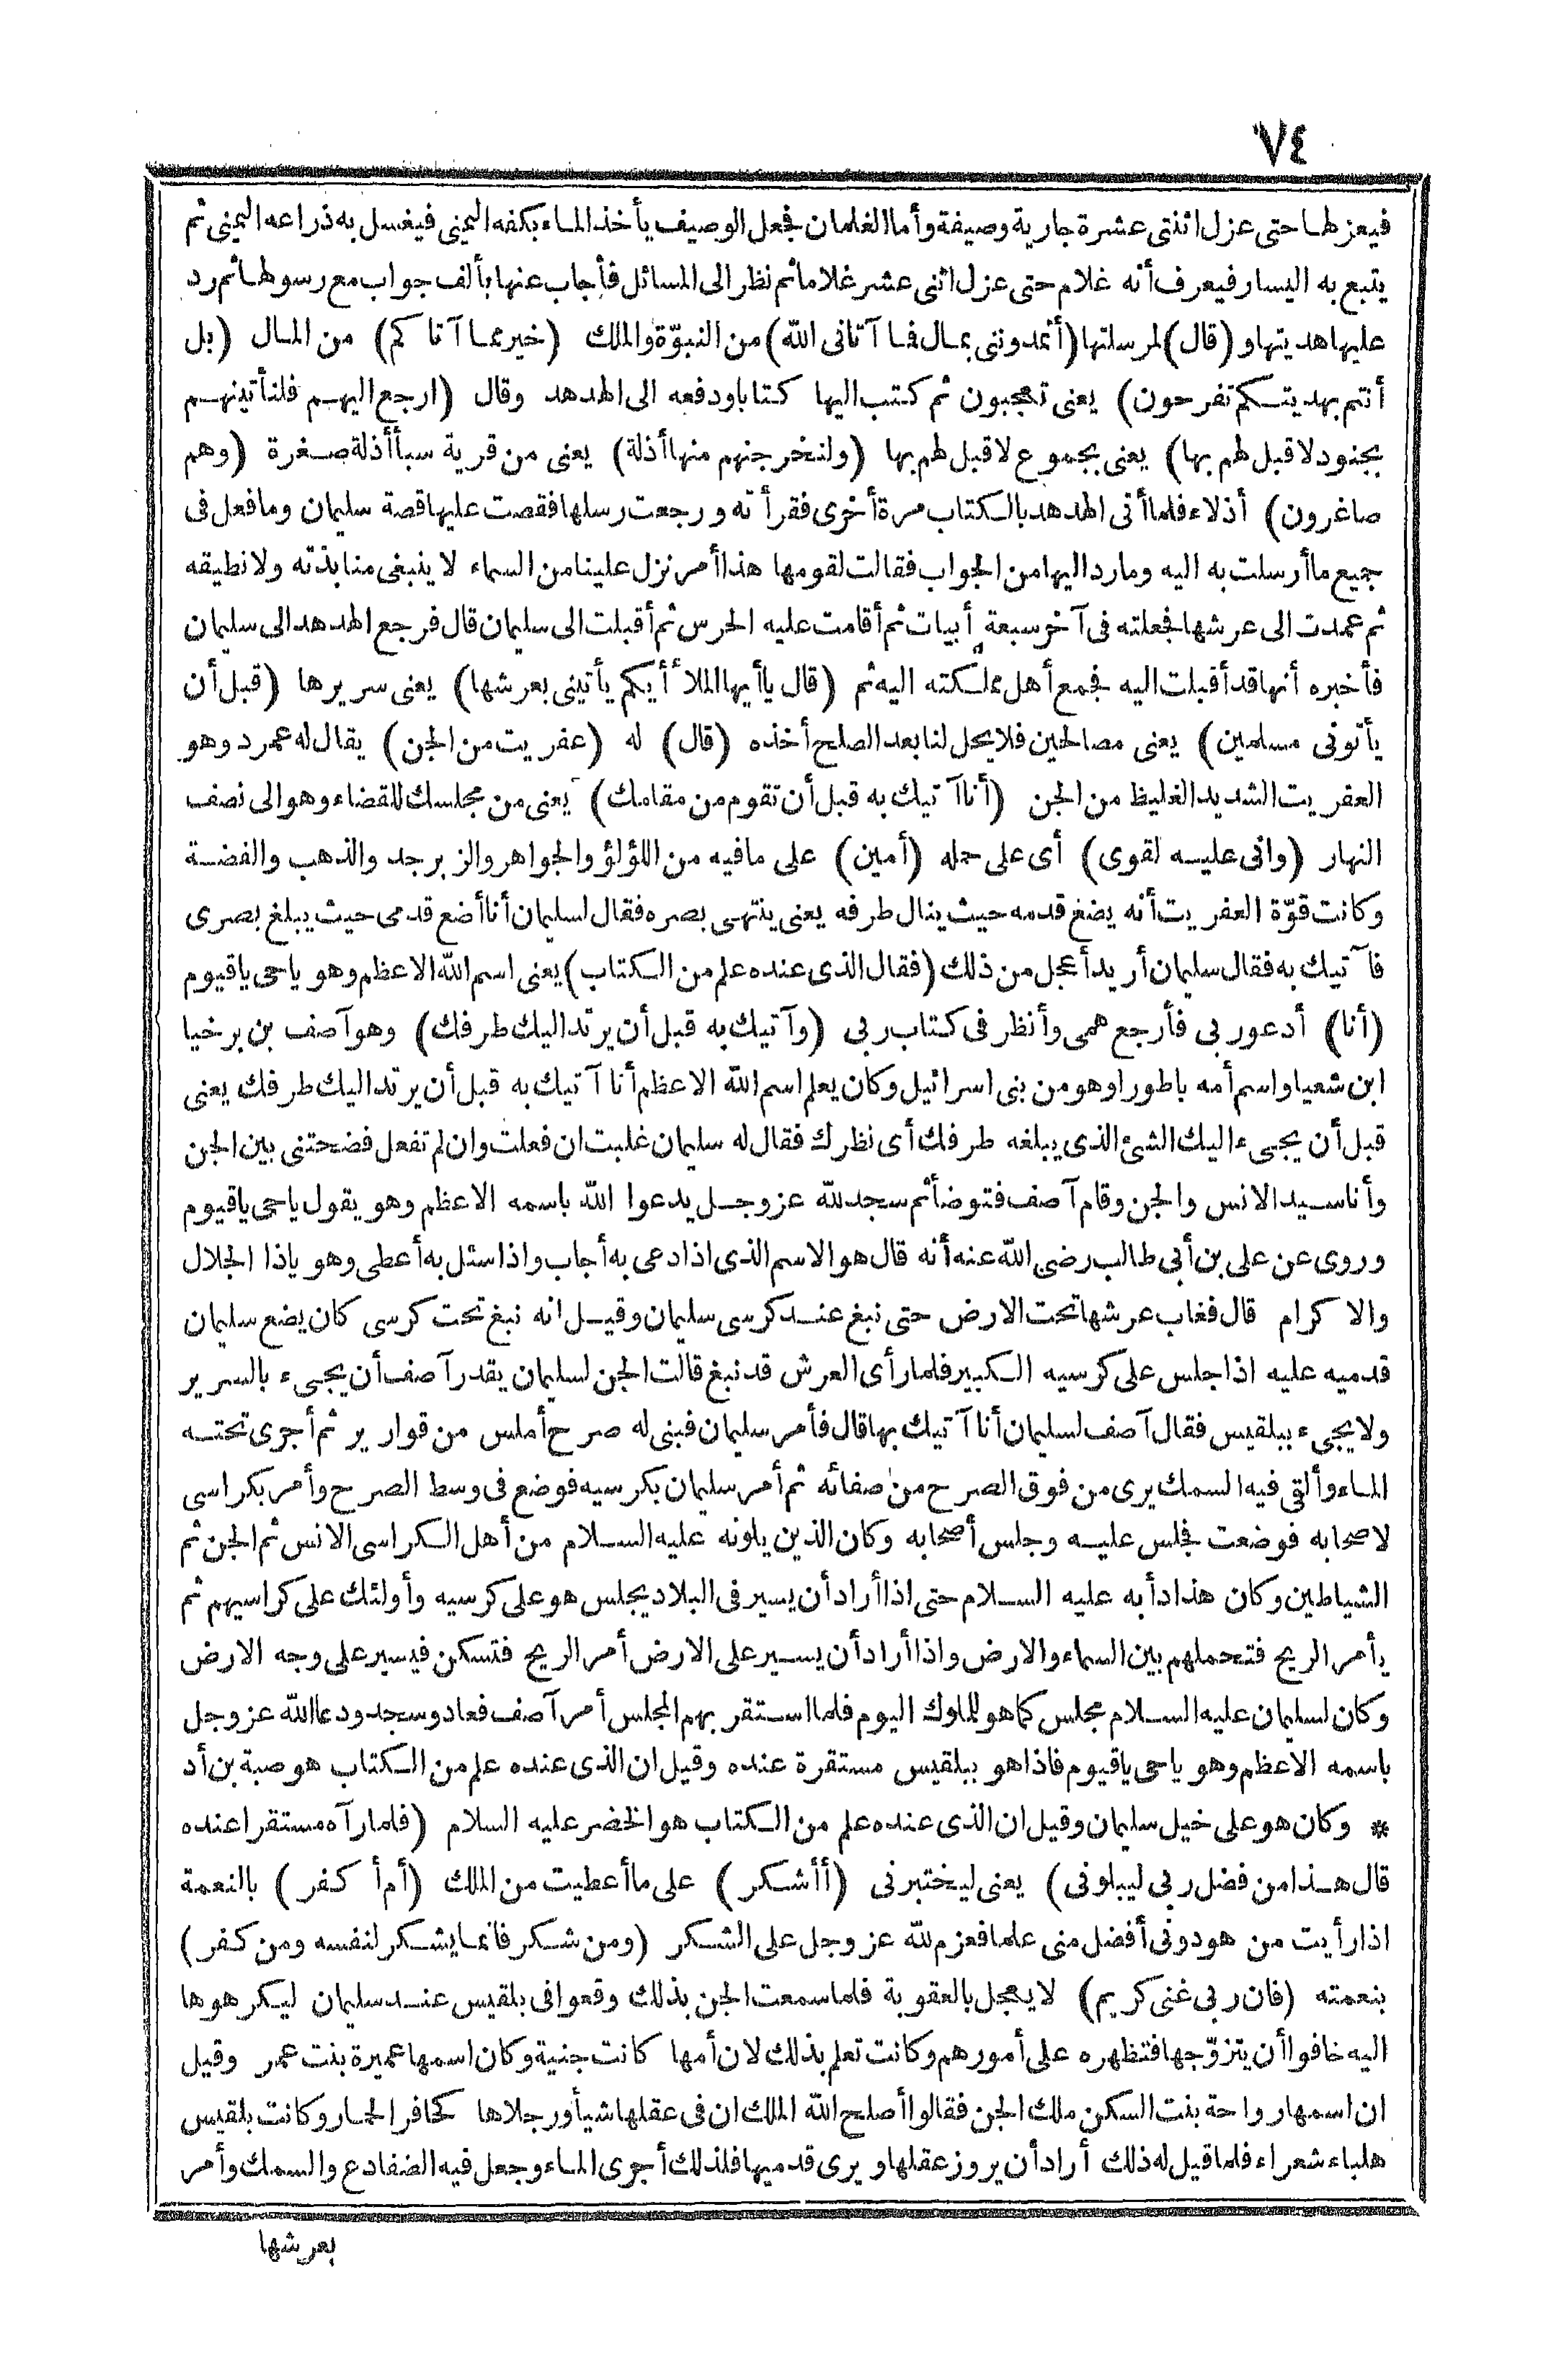 ٧٤
فيعزلها حتى عزل اثنتى عشرة جارية وصيفة وأما الغلمان فجعل الوصيف يأخذ الماء بكفه اليمنى فيغسل به ذراعه اليمنى ثم
يتبع به اليسار فيعرف أنه غلام حتى عزل اثنى عشر غلاما ثم نظر الى المسائل فأجاب عنها بألف جواب مع رسولها ثم رد
عليها هديتها و (قال) لمرسلتها (أتمدوننى بمال فما آتانى الله) من النبوّة والملك (خير مما آتاكم) من المال (بل
أنتم بهديتكم تفرحون) يعنى تعجبون ثم كتب اليها كتابا ودفعه الى الهدهد وقال (ارجع اليهم فلنأتينهم
بجنود لا قبل لهم بها) يعنى بجموع لا قبل لهم بها (ولنخرجنهم منها أذلة) يعنى من قرية سبأ أذلة صغرة (وهم
صاغرون) أذلاء فلما أتى الهدهد بالكتاب مرة أخرى فقرأته ورجعت رسلها فقصت عليها قصة سليمان وما فعل فى
جميع ما أرسلت به اليه وما رد اليها من الجواب فقالت لقومها هذا أمر نزل علينا من السماء لا ينبغى منابذته ولا نطيقه
ثم عمدت الى عرشها فجعلته فى آخر سبعة أبيات ثم أقامت عليه الحرس ثم أقبلت الى سليمان قال فرجع الهدهد الى سليمان
فأخبره أنها قد أقبلت اليه فجمع أهل مملكته اليه ثم (قال يا أيها الملأ أيكم يأتينى بعرشها) يعنى سريرها (قبل أن
يأتونى مسلمين) يعنى مصالحين فلا يحل لنا بعد الصلح أخذه (قال) له (عفريت من الجن) يقال له عمرد وهو
العفريت الشديد الغليظ من الجن (أنا آتيك به قبل أن تقوم من مقامك) يعنى من مجلسك للقضاء وهو الى نصف
النهار (وانى عليه لقوى) أى على حمله (أمين) على ما فيه من اللؤلؤ والجواهر والزبرجد والذهب والفضة
وكانت قوّة العفريت أنه يضغ قدمه حيث ينال طرفه يعنى ينتهى بصره فقال لسليمان أنا أضع قدمى حيث يبلغ بصرى
فآتيك به فقال سليمان أريد أعجل من ذلك (فقال الذى عنده علم من الكتاب) يعنى اسم الله الاعظم وهو يا حى يا قيوم
(أنا) أدعو ربى فأرجع همى وأنظر فى كتاب ربى (وآتيك به قبل أن يرتد اليك طرفك) وهو آصف بن برخيا
ابن شعيا واسم أمه باطورا وهو من بنى اسرائيل وكان يعلم اسم الله الاعظم أنا آتيك به قبل أن يرتد اليك طرفك يعنى
قبل أن يجىء اليك الشئ الذى يبلغه طرفك أى نظرك فقال له سليمان غلبت ان فعلت وان لم تفعل فضحتنى بين الجن
وأنا سيد الانس والجن وقام آصف فتوضأ ثم سجد لله عز وجل يدعوا الله باسمه الاعظم وهو يقول يا حى يا قيوم
وروى عن على بن أبى طالب رضى الله عنه أنه قال هو الاسم الذى اذا دعى به أجاب واذا سئل به أعطى وهو يا ذا الجلال
والاكرام قال فغاب عرشها تحت الارض حتى نبغ عند كرسى سليمان وقيل انه نبغ تحت كرسى كان يضع سليمان
قدميه عليه اذا جلس على كرسيه الكبير فلما رأى العرش قد نبغ قالت الجن لسليمان يقدر آصف أن يجىء بالسرير
ولا يجىء ببلقيس فقال آصف لسليمان أنا آتيك بها قال فأمر سليمان فبنى له صرح أملس من قوارير ثم أجرى تحته
الماء وألقى فيه السمك يرى من فوق الصرح من صفائه ثم أمر سليمان بكرسيه فوضع فى وسط الصرح وأمر بكراسى
لاصحابه فوضعت فجلس عليه وجلس أصحابه وكان الذين يلونه عليه السلام من أهل الكراسى الانس ثم الجن ثم
الشياطين وكان هذا دأبه عليه السلام حتى اذا أراد أن يسير فى البلاد يجلس هو على كرسيه وأولئك على كراسيهم ثم
يأمر الريح فتحملهم بين السماء والارض واذا أراد أن يسير على الارض أمر الريح فتسكن فيسير على وجه الارض
وكان لسليمان عليه السلام مجلس كما هو للملوك اليوم فلما استقر بهم المجلس أمر آصف فعاد وسجد ودعا الله عز وجل
باسمه الاعظم وهو يا حى يا قيوم فاذا هو ببلقيس مستقرة عنده وقيل ان الذى عنده علم من الكتاب هو ضبة بن أد
* وكان هو على خيل سليمان وقيل ان الذى عنده علم من الكتاب هو الخضر عليه السلام (فلما رآه مستقرا عنده
قال هذا من فضل ربى ليبلونى) يعنى ليختبرنى (أأشكر) على ما أعطيت من الملك (أم أكفر) بالنعمة
اذا رأيت من هو دونى أفضل منى علما فعزم لله عز وجل على الشكر (ومن شكر فانما يشكر لنفسه ومن كفر)
بنعمته (فان ربى غنى كريم) لا يعجل بالعقوبة فلما سمعت الجن بذلك وقعوا فى بلقيس عند سليمان ليكرهوها
اليه خافوا أن يتزوّجها فتظهره على أمورهم وكانت تعلم بذلك لان أمها كانت جنية وكان اسمها عميرة بنت عمر وقيل
ان اسمها رواحة بنت السكن ملك الجن فقالوا أصلح الله الملك ان فى عقلها شيأ ورجلاها كحافر الحمار وكانت بلقيس
هلباء شعراء فلما قيل له ذلك أراد أن يروز عقلها ويرى قدميها فلذلك أجرى الماء وجعل فيه الضفادع والسمك وأمر
بعرشها